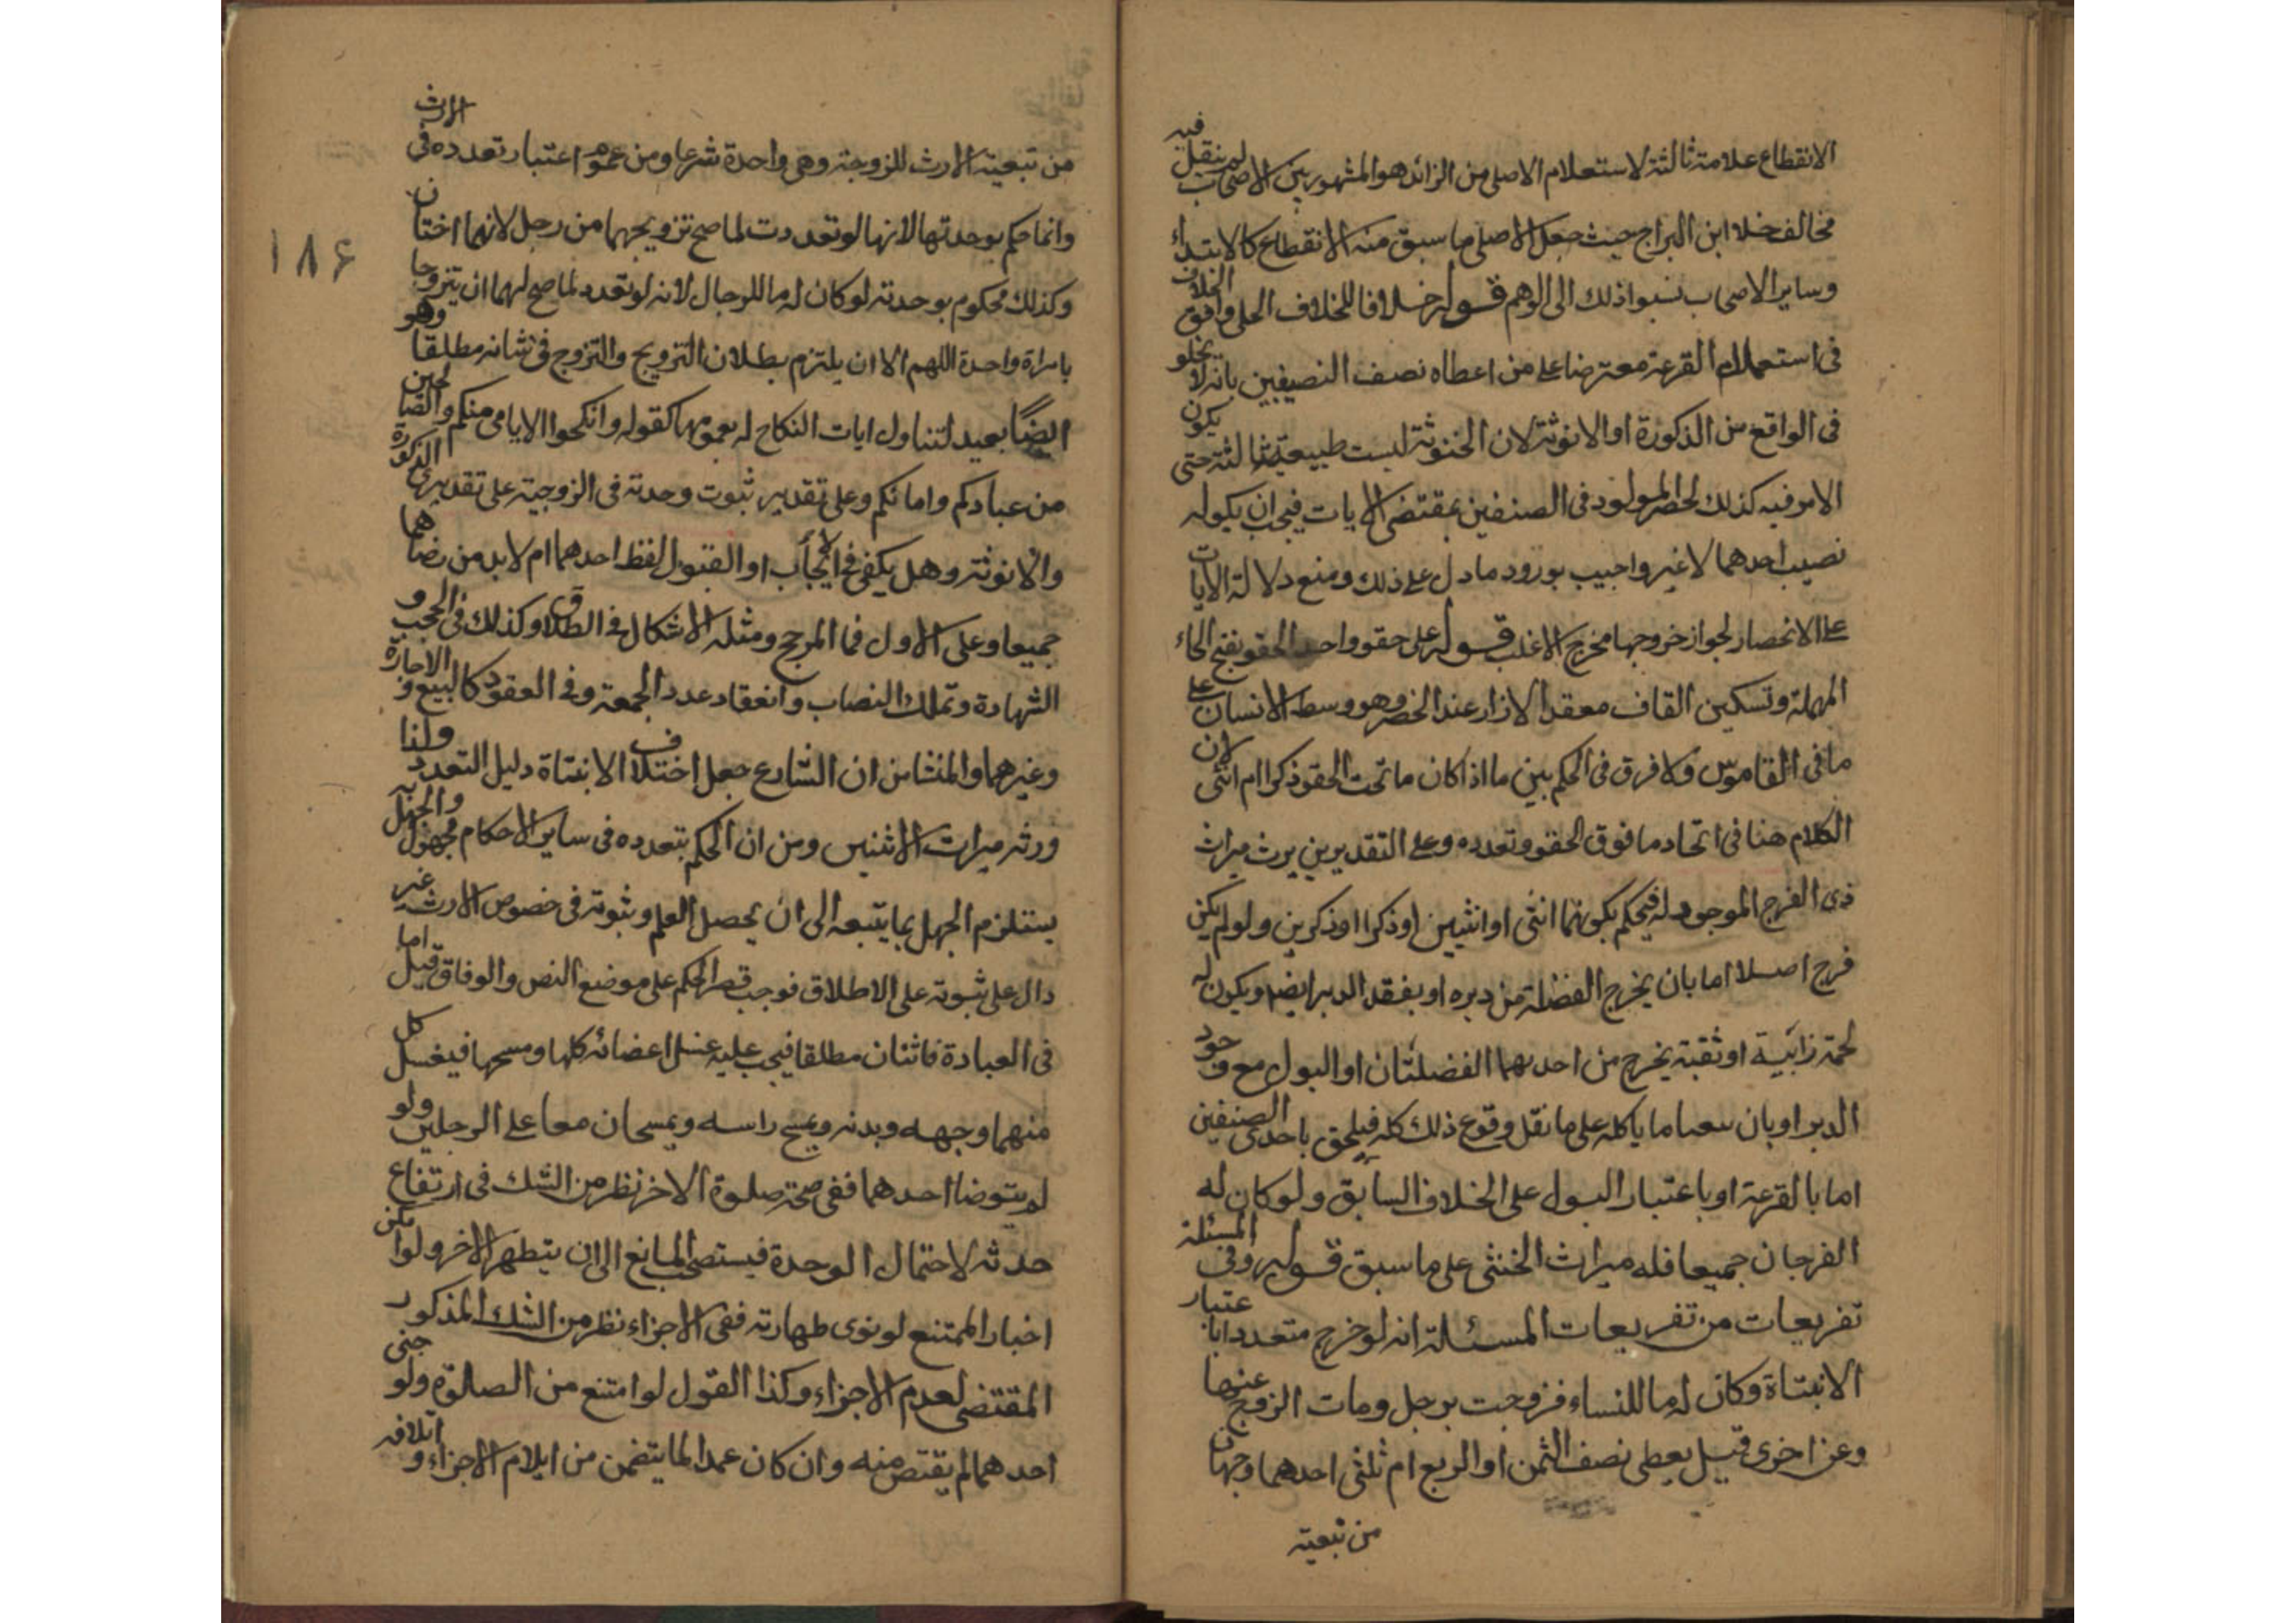 الانقطاع علامة ثالثة لاستعلام الاصلى من الزائد هو المشهور بين الاصحاب لم ينقل فيه
مخالف خلا ابن البراج حيث جعل الاصلى ما سبق منه الانقطاع كالابتداء
وساير الاصحاب نسبوا ذلك الى الوهم قوله خلافا للخلاف الحلى وافق الخلاف
فى استعمال القرعة معترضا على من اعطاه نصف النصيبين بانه لا يخلو
فى الواقع من الذكورة او الانوثة لان الخنوثة ليست طبيعة ثالثة حتى يكون
الامر فيه كذلك لحصر المولود فى الصنفين بمقتضى الايات فيجب ان يكون له
نصيب احدهما لا غير واجيب بورود ما دل على ذلك ومنع دلالة الايات
على الانحصار لجواز خروجها مخرج الاغلب قوله على حقو واحد الحقو بفتح الحاء
المهملة وتسكين القاف معقد الازار عند الخصر وهو وسط الانسان على
ما فى القاموس ولا فرق فى الحكم بين ما اذا كان ما تحت الحقو ذكرا ام انثى لان
الكلام هنا فى اتحاد ما فوق الحقو وتعدده وعلى التقديرين يرث ميراث
ذى الفرج الموجود له فيحكم بكونهما انثى او انثيين او ذكرا او ذكرين ولو لم يكن
فرج اصلا اما بان يخرج الفضلة من دبره او بفقد الدبر ايضا ويكون له
لحمة رابية او ثقبة يخرج من احديهما الفضلتان او البول مع وجود
الدبر او بان ما ياكله على ما نقل وقوع ذلك كله فيلحق باحدى الصنفين
اما بالقرعة او باعتبار البول على الخلاف السابق ولو كان له
الفرجان جميعا فله ميراث الخنثى على ما سبق قوله وفى المسئلة
تفريعات من تفريعات المسئلة انه لو خرج متعددا باعتبار
الانبتاة وكان له ما للنساء فزوجت برجل ومات الزوج عنها
وعن اخرى قيل يعطى نصف الثمن او الربع ام ثلثى احدهما وجهان
من تبعية
من تبعية الارث للزوجة وهى واحدة شرعا ومن عموم اعتبار تعدده فى الارث
وانما حكم بوحدتها لانها لو تعددت لما صح تزويجهما من رجل لانهما اختان
وكذلك محكوم بوحدته لو كان له ما للرجال لانه لو تعدد لما صح لهما ان يتزوجا
بامراة واحدة اللهم الا ان يلتزم بطلان التزويج والتزوج فى شانه مطلقا وهو
ايضًا بعيد لتناول ايات النكاح له بعمومها كقوله وانكحوا الايامى منكم والصالحين
من عبادكم وامائكم وعلى تقدير ثبوت وحدته فى الزوجية على تقديرى الذكورة
والانوثة وهل يكفى فى الايجاب او القبول لفظ احدهما ام لا بد من رضاهما
جميعا وعلى الاول فما المرجح ومثله الاشكال فى الطلاق وكذلك فى الحجب و
الشهادة وتملك النصاب وانعقاد عدد الجمعة وفى العقود كالبيع والاجارة
وغيرهما والمنشا من ان الشارع جعل اختلاف الانبتاة دليل التعدد ولذا
ورثه ميراث الاثنين ومن ان الحكم بتعدده فى ساير الاحكام مجهول والجهل به
يستلزم الجهل بما يتبعه الى ان يحصل العلم وثبوته فى خصوص الارث غير
دال على ثبوته على الاطلاق فوجب قصر الحكم على موضع النص والوفاق قيل اما
فى العبادة فاثنان مطلقا فيجب عليه غسل اعضائه كلها ومسحها فيغسل كل
منهما وجهه وبدنه ويمسح راسه ويمسحان معا على الرجلين ولو
لم يتوضا احدهما ففى صحة صلوة الاخر نظر من الشك فى ارتفاع
حدثه لاحتمال الوحدة فيستصحب المانع الى ان يتطهر الاخر ولو امكن
اخبار الممتنع لو نوى طهارته ففى الاجزاء نظر من الشك المذكور
المقتضى لعدم الاجزاء وكذا القول لو امتنع من الصلوة ولو جنى
احدهما لم يقتص منه وان كان عمدا لما يتضمن من ايلام الاجزاء و اتلافه
١٨۶